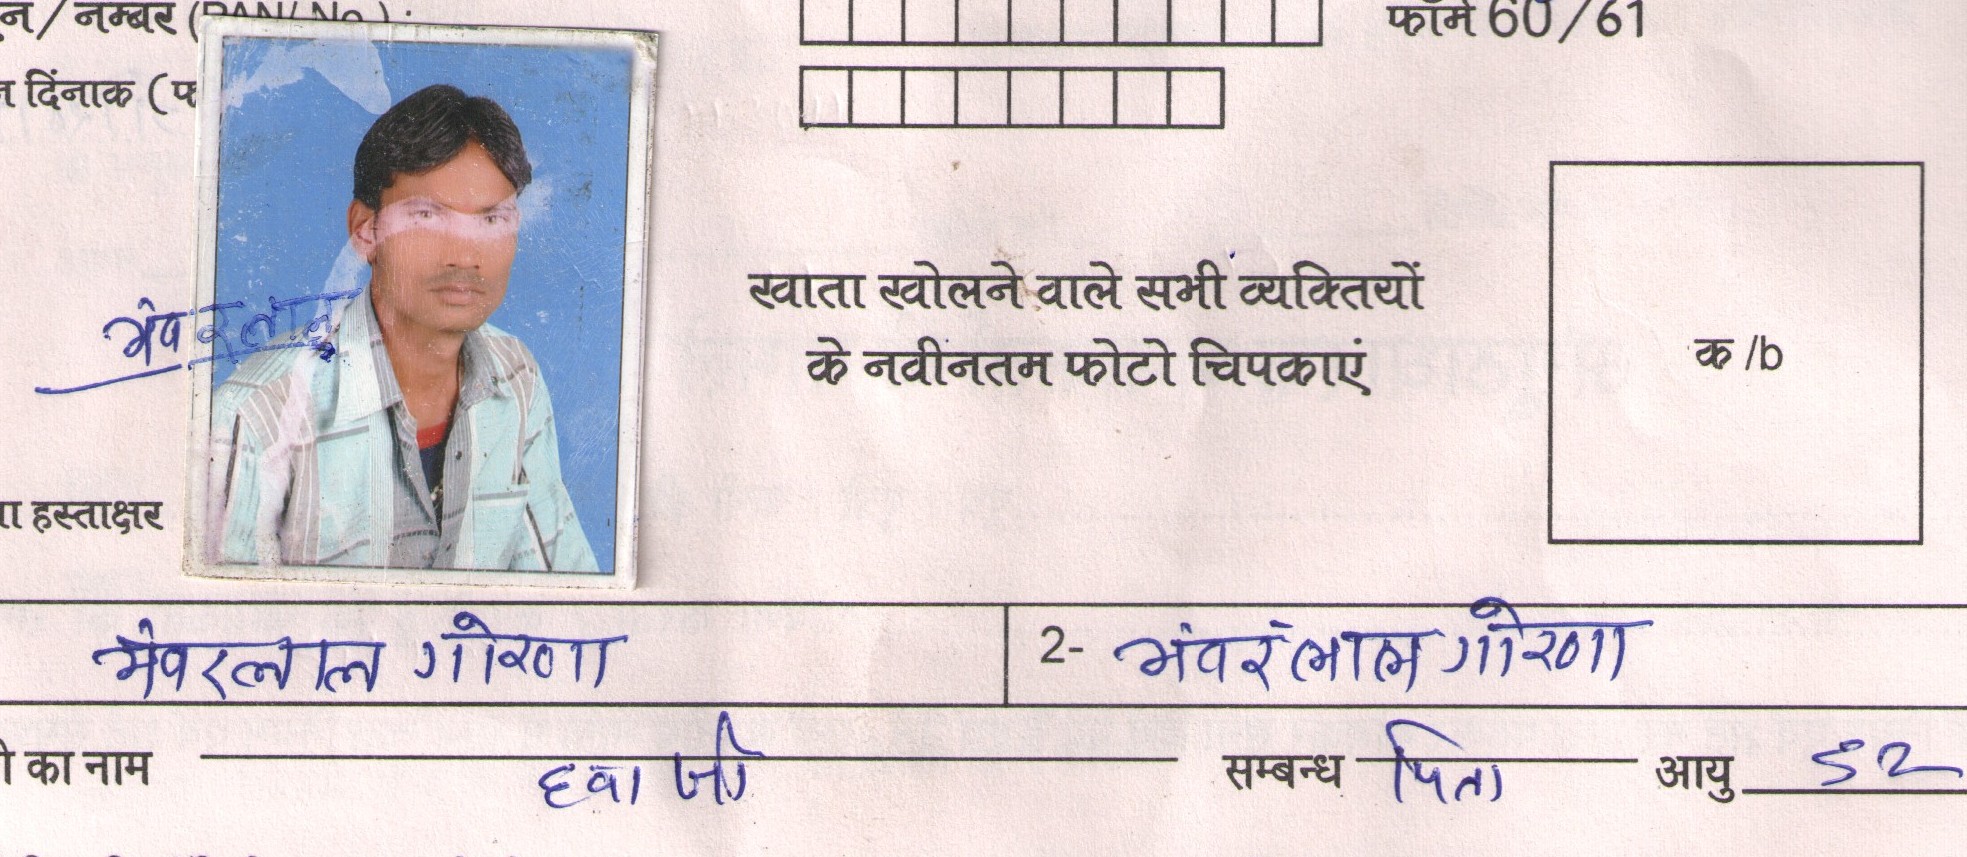 न / नम्बर (PAN/ No.) :
फॉर्म 60 / 61
न दिंनाक (फ
खाता खोलने वाले सभी व्यक्तियों
के नवीनतम फोटो चिपकाएं
क /b
भंवरलाल
ा हस्ताक्षर
भंवरलाल गोरणा
2- भंवरलाल गोरणा
ी का नाम हवा जी सम्बन्ध पिता आयु 52